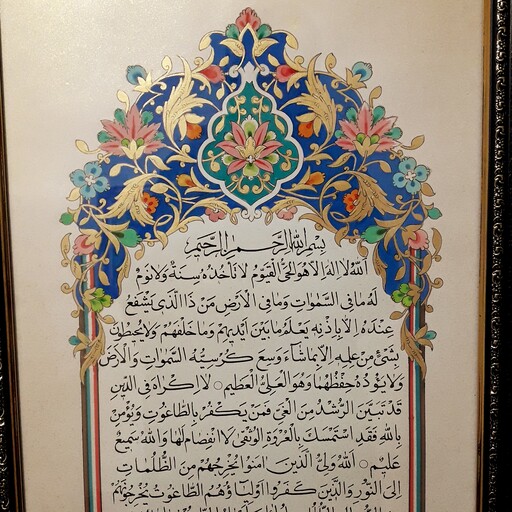 بسم الله الرحمن الرحیم
الله لا اله الا هو الحی القیوم لا تاخذه سنة ولا نوم
له ما فی السموات وما فی الارض من ذا الذی یشفع
عنده الا باذنه یعلم ما بین ایدیهم وما خلفهم ولا یحیطون
بشیء من علمه الا بما شاء وسع کرسیه السموات والارض
ولا یؤده حفظهما وهو العلی العظیم لا اکراه فی الدین
قد تبین الرشد من الغی فمن یکفر بالطاغوت ویؤمن
بالله فقد استمسک بالعروة الوثقی لا انفصام لها والله سمیع
علیم الله ولی الذین امنوا یخرجهم من الظلمات
الی النور والذین کفروا اولیاؤهم الطاغوت یخرجونهم